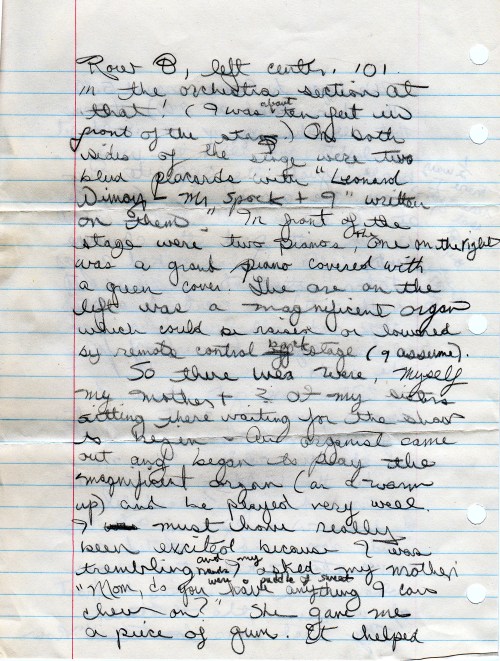 Row B, left center, 101.
in the orchestra section at
that! (I was about ten feet in
front of the stage.) On both
sides of the stage were two
blue placards with "Leonard
Nimoy - Mr Spock + I" written
on them." In front of the
stage were two pianos, the one on the right
was a grand piano covered with
a green cover. The one on the
left was a magnificent organ
which could be raised or lowered
by remote control backstage (I assume).
So there we were, myself
my mother + 2 of my sisters
sitting there waiting for the show
to begin. An organist came
out and began to play the
magnificent organ (as a warm
up) and he played very well.
I must have really
been excited because I was
trembling and my hands were a puddle of sweat I asked my mother
"Mom, do you have anything I can
chew on?" She gave me
a piece of gum. It helped